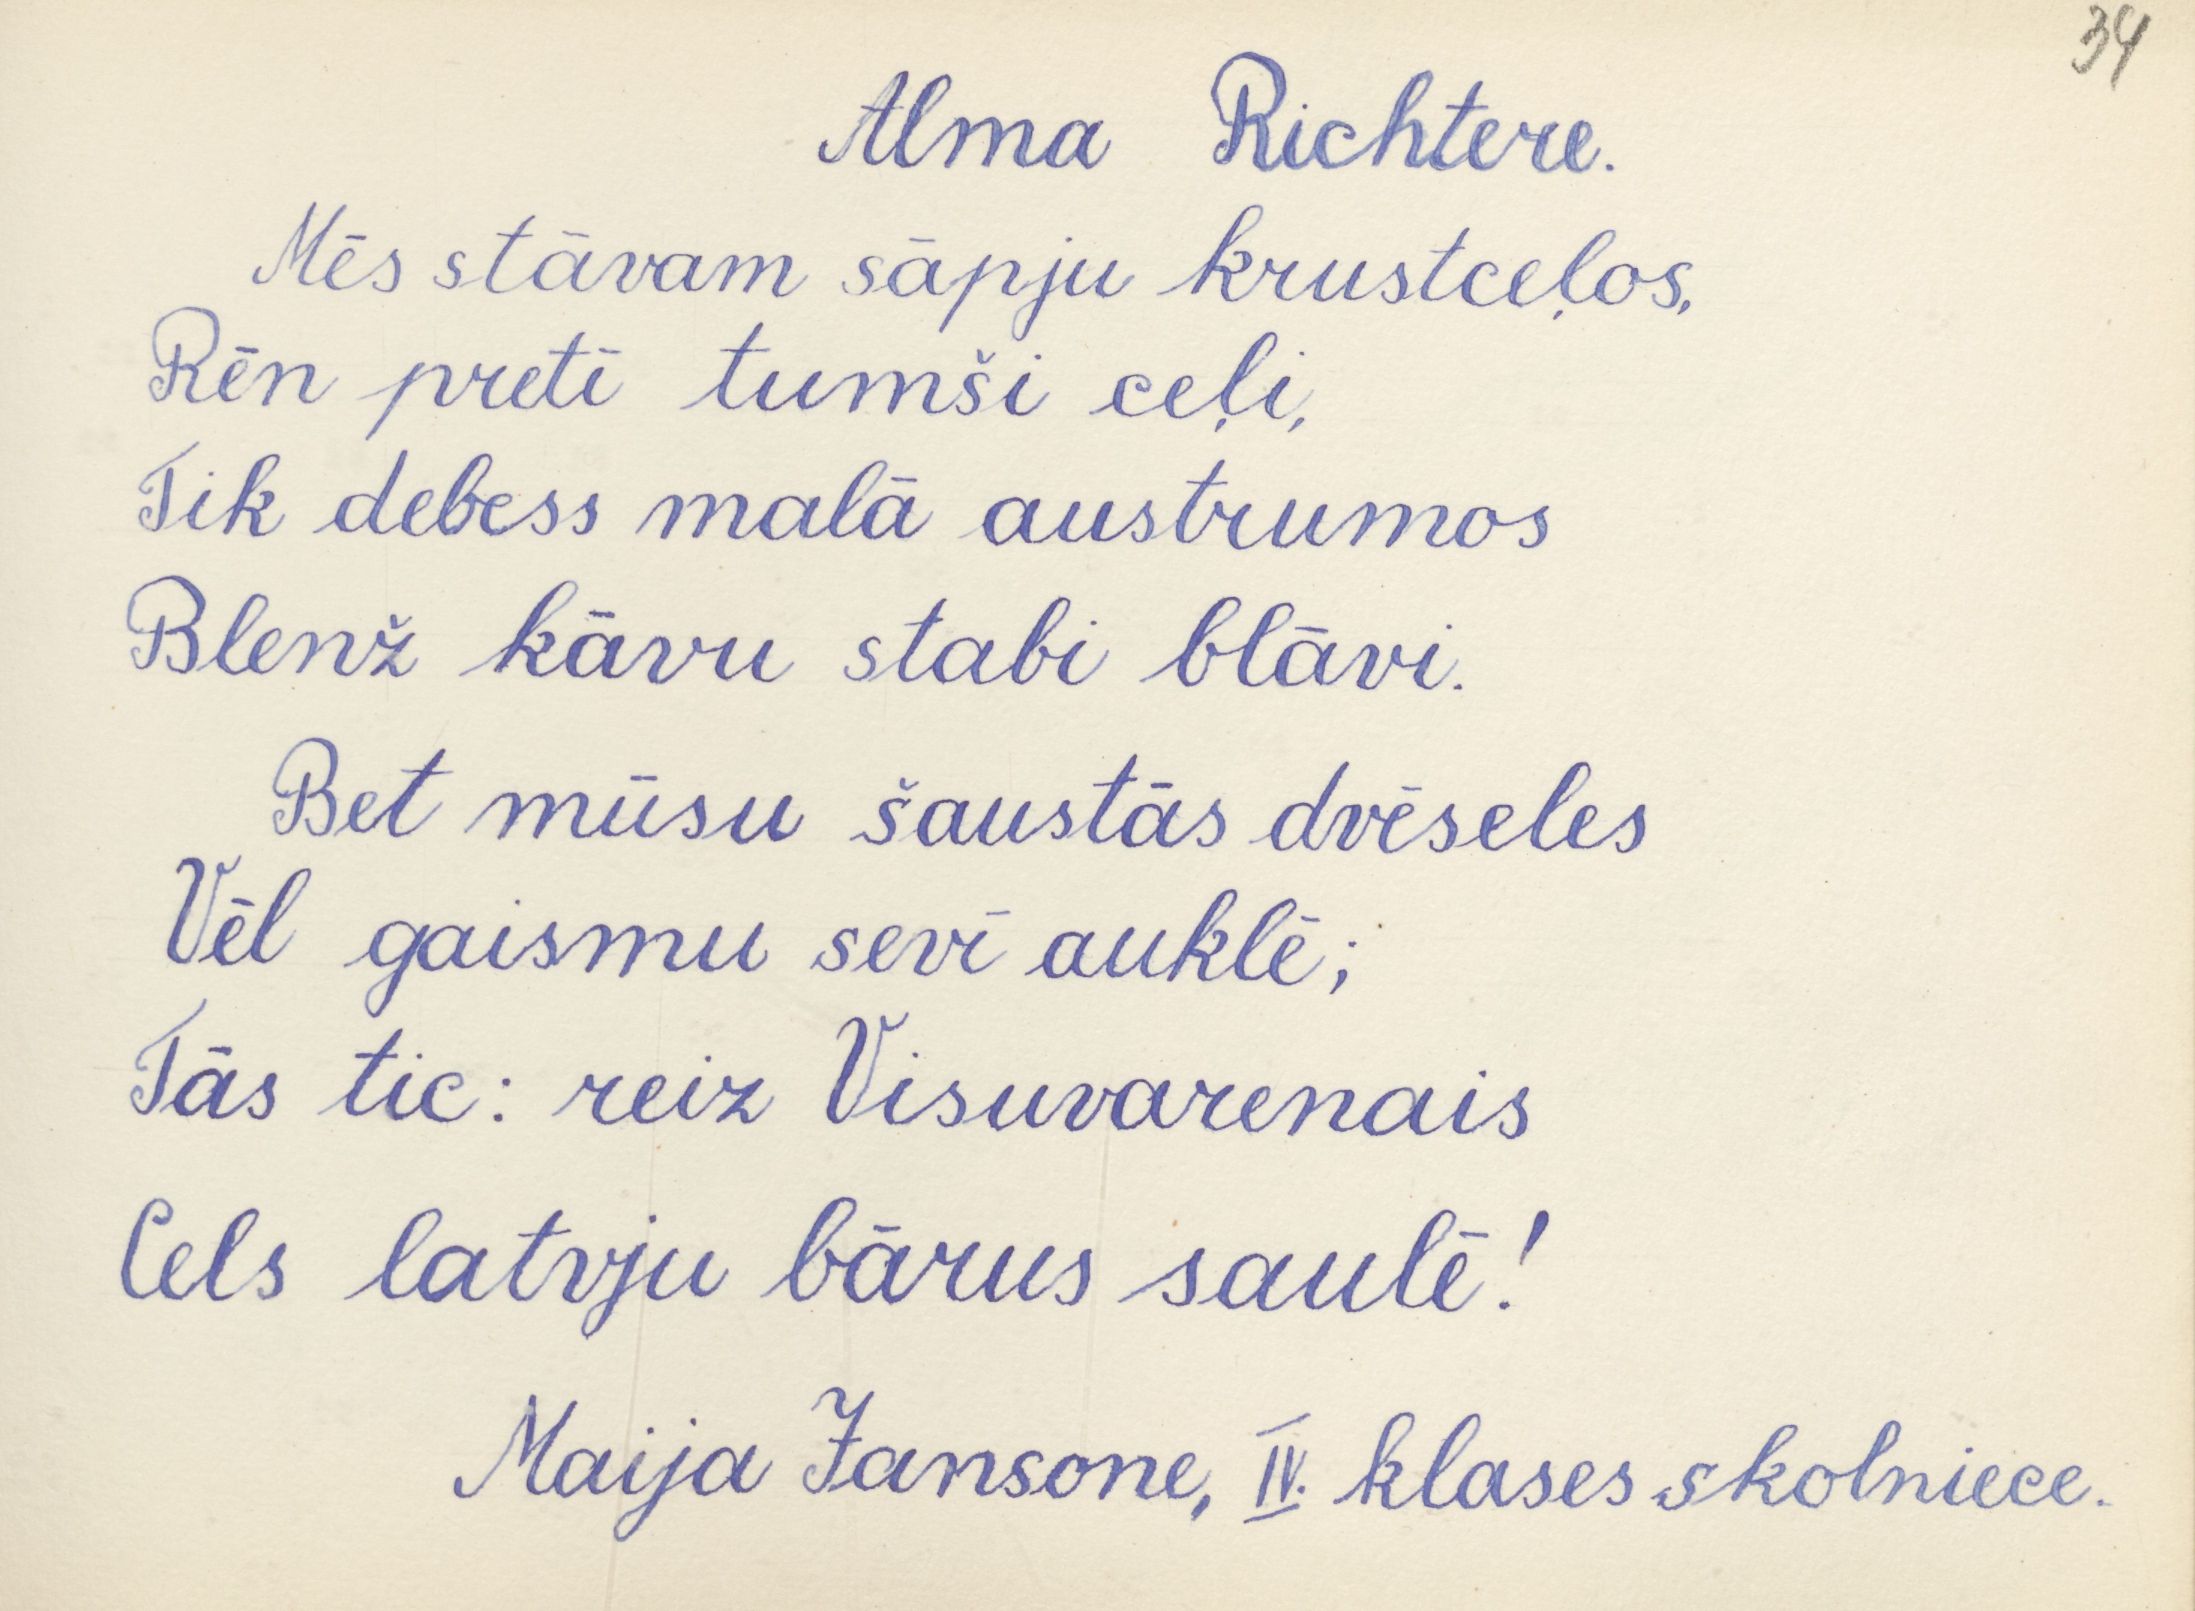 34
Alma Richtere.
Mēs stāvam sāpju krustceļos,
Rēn pretī tumši ceļi,
Tik debess malā austrumos
Blenž kāvu stabi blāvi.
Bet mūsu šaustās dvēseles
Vēl gaismu sevī auklē;
Tās tic: reiz Visuvarenais
Cels latvju bārus saulē!
Maija Jansone, IV. klases skolniece.